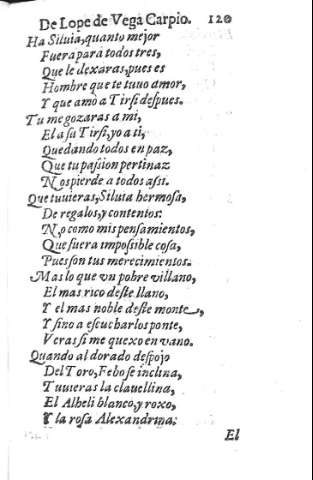 De Lope de Vega Carpio. 120
Ha Siluia, quanto mejor
Fuera para todos tres,
Que le dexaras, pues es
Hombre que te tuuo amor,
Y que amò a Tirsi despues.
Tu me gozaras a mi,
El a su Tirsi, yo a ti,
Quedando todos en paz,
Que tu passion pertinaz
Nos pierde a todos assi.
Que tuuieras, Siluia hermosa,
De regalos, y contentos:
No como mis pensamientos,
Que fuera impossible cosa,
Pues son tus merecimientos.
Mas lo que vn pobre villano,
El mas rico deste llano,
Y el mas noble deste monte,
Y sino a escucharlos ponte,
Veras si me quexo en vano.
Quando al dorado despojo
Del Toro, Febo se inclina,
Tuuieras la clauellina,
El Alheli blanco, y roxo,
Y la rosa Alexandrina:
El